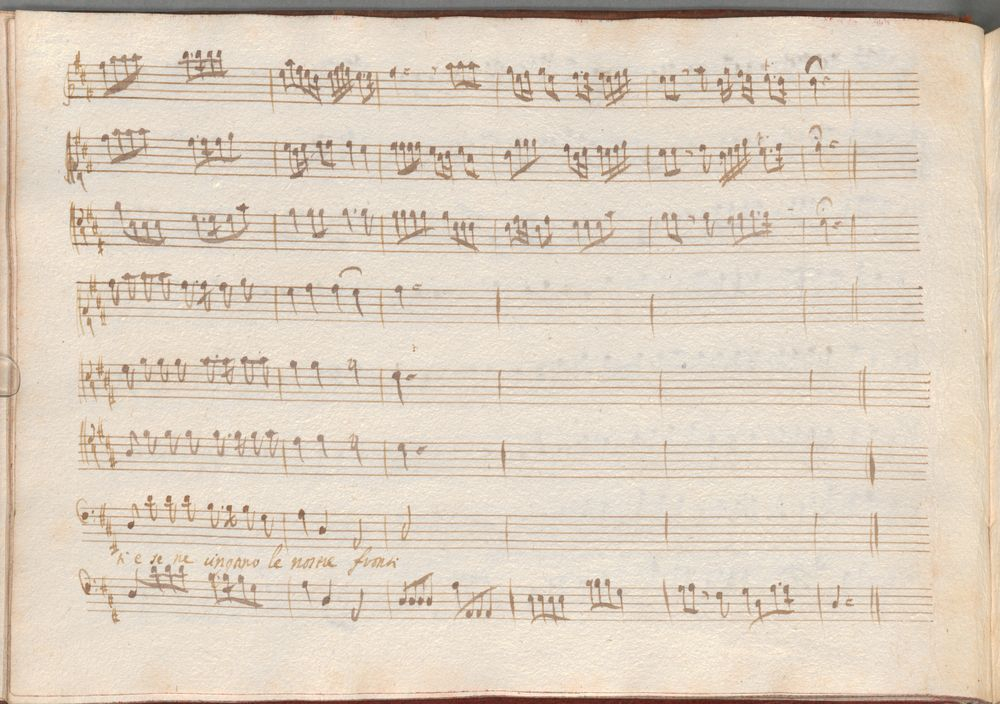 ti e se ne cingano le nostre fronti